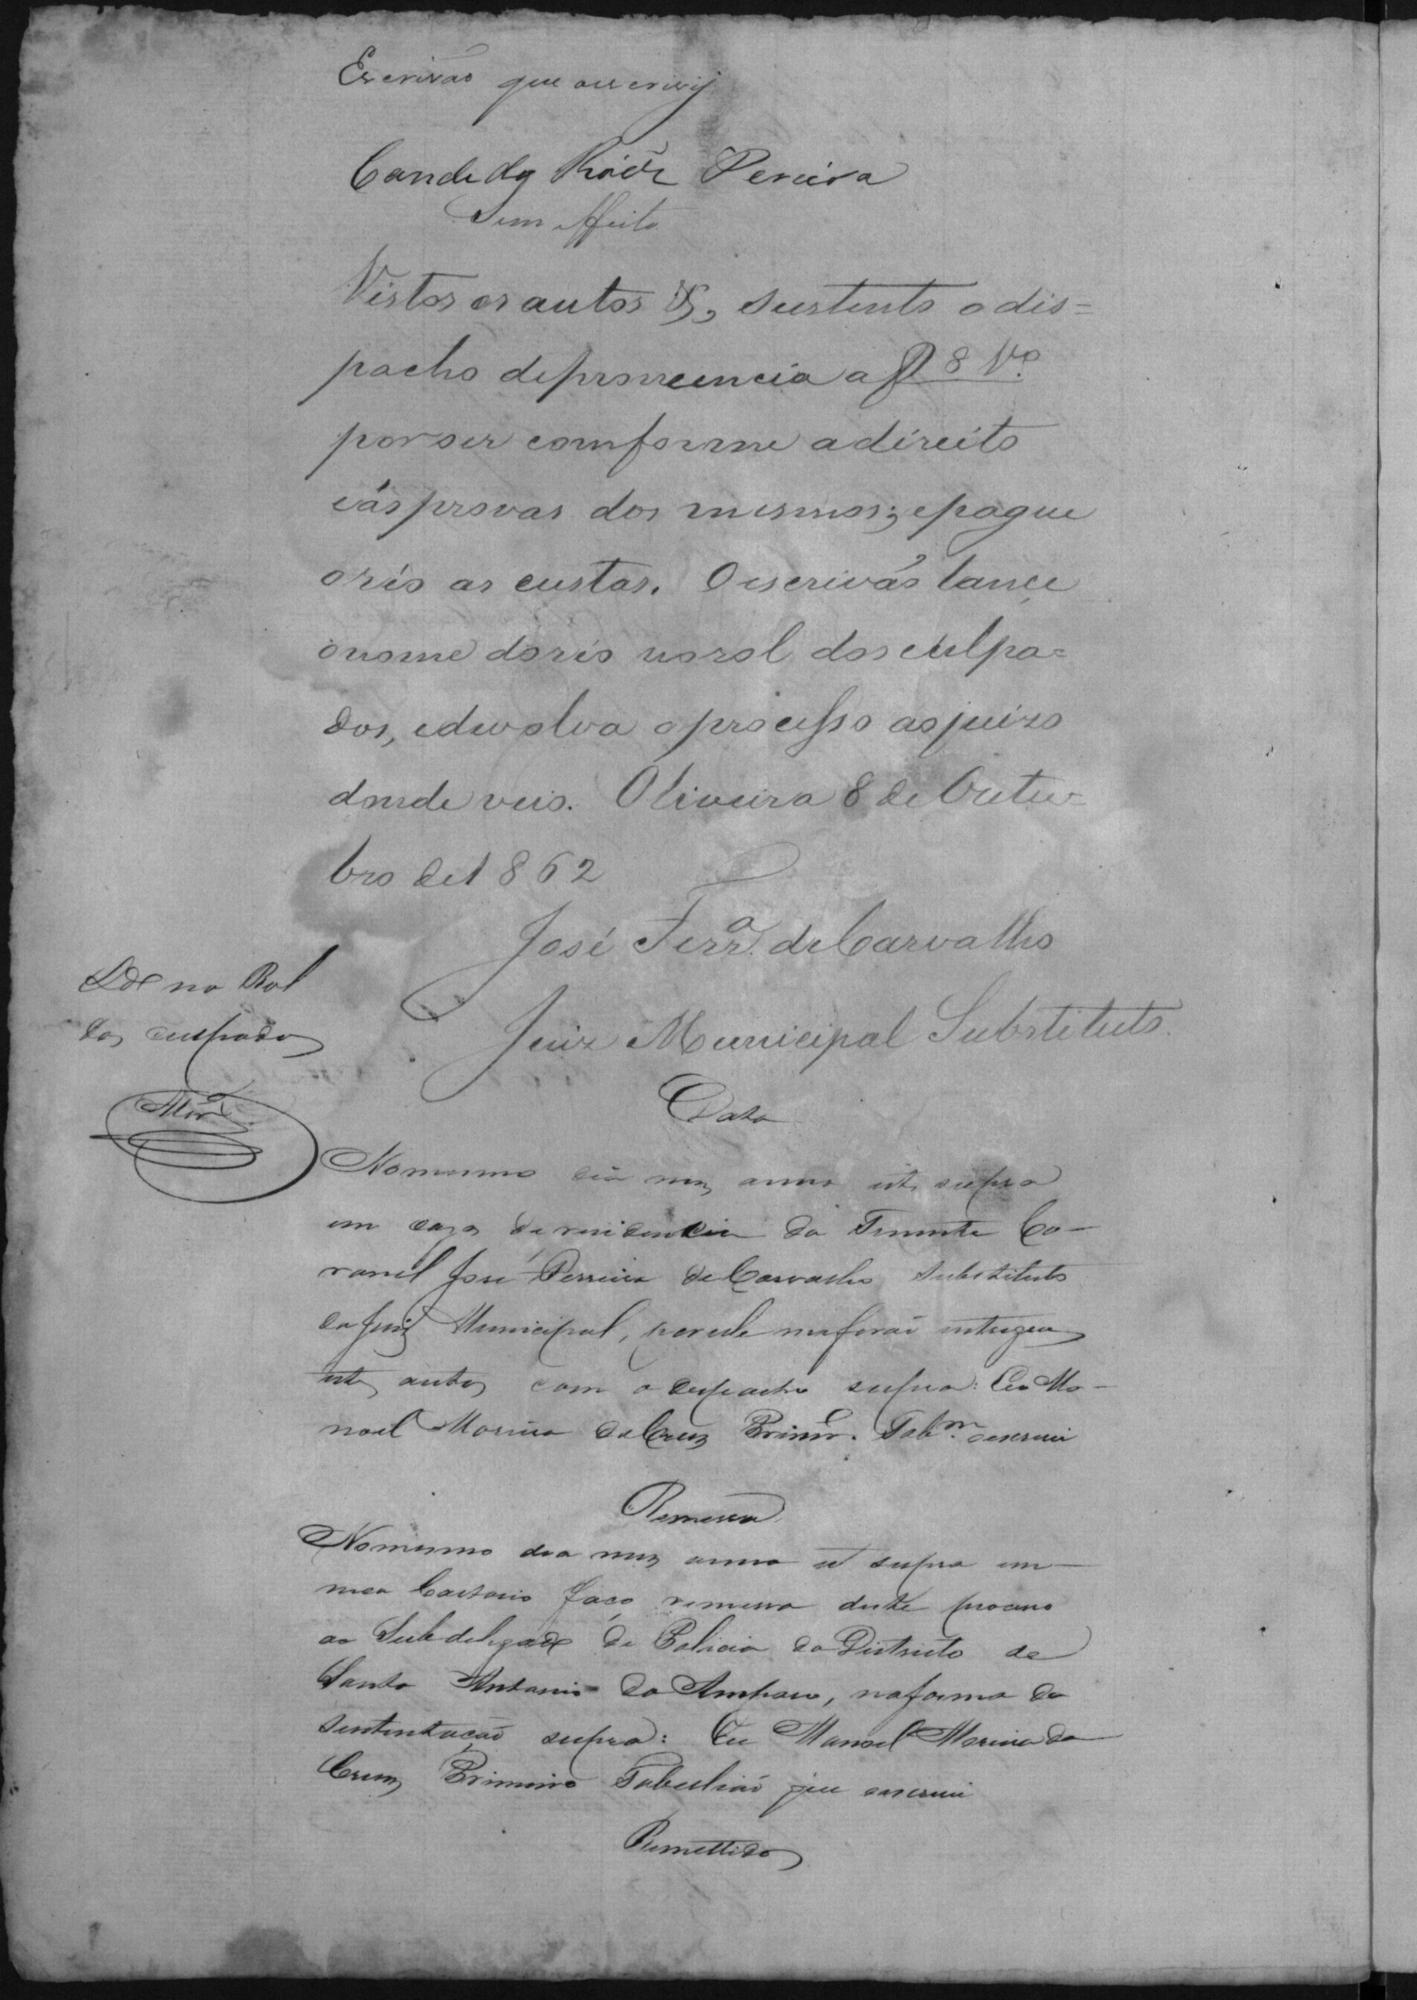 Escrivaõ que o escrevÿ
Candido Roiz Pereira
Sem effeito
Vistos os autos &, sustento o dis=
pacho depronuncia a f 8 Vº
por ser comforme adireito
eás provas dos mesmos; epague
oréo as custas. Oescrivaõ lance
onome doréo norol dos culpa=
dos, edevolva oprocesso aojuizo
donde veio. Oliveira 8 de Outu=
bro de 1862
José Ferrª. deCarvalho
Juiz Municipal Substituto.
Ldo no Rol
dos culpados
Data
Nomesmo dia mes anno ut supra
em caza de residencia do Tenente Co-
ronel José Ferreira de Carvalho Substituto
do Juiz Municipal, por ele meforaõ entregues
estes autos com o despacho supra: Eu Ma-
noel Moreira da Cruz Primrº. Tabam. oescrevi
Remessa
Nomesmo dia mes anno ut supra em
meu Cartorio faço remessa deste processo
ao Subdelegado de Policia do Districto de
Santo Antonio do Amparo, naforma da
sustentaçaõ supra: Eu Manoel Moreira da
Cruz Primeiro Tabeliaõ que oescrevi
Remettido